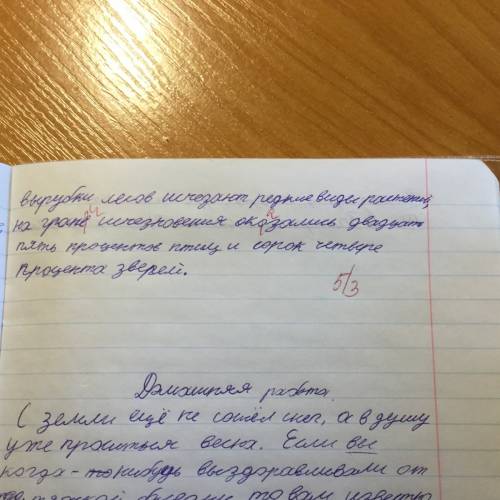 вырубки лесов исчезают редкие виды растений,
на грани исчезновения оказались двадцать
пять процентов птиц и сорок четыре
процента зверей.
5/3
Домашняя работа.
С земли ещё не сошёл снег, а в душу
уже проситься весна. Если вы
когда-нибудь выздоравливали от
болезни, то вам известны